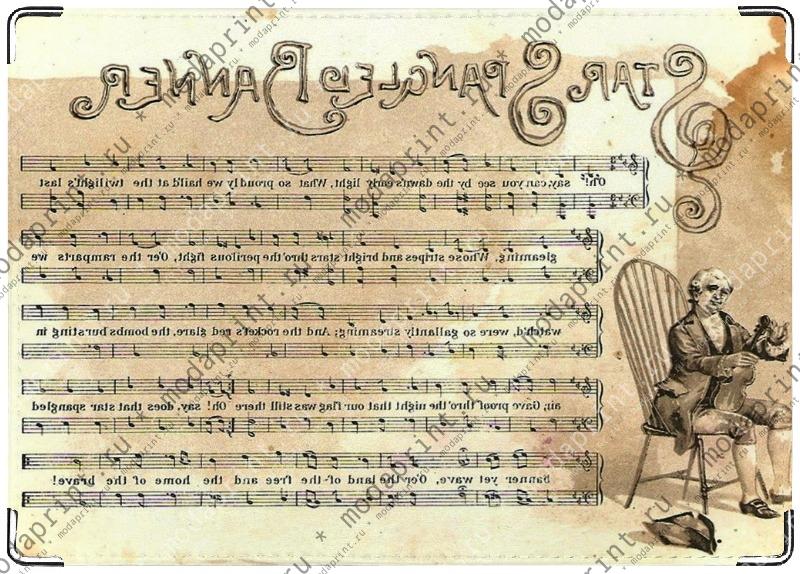 Star Spangled Banner
Oh! say, can you see by the dawn's early light, What so proudly we hail'd at the twilight's last
gleaming, Whose stripes and bright stars thro' the perilous fight, O'er the ramparts we
watch'd, were so gallantly streaming; And the rocket's red glare, the bombs bursting in
air, Gave proof thro' the night that our flag was still there Oh! say, does that star spangled
banner yet wave, O'er the land of the free and the home of the brave!
modaprint.ru